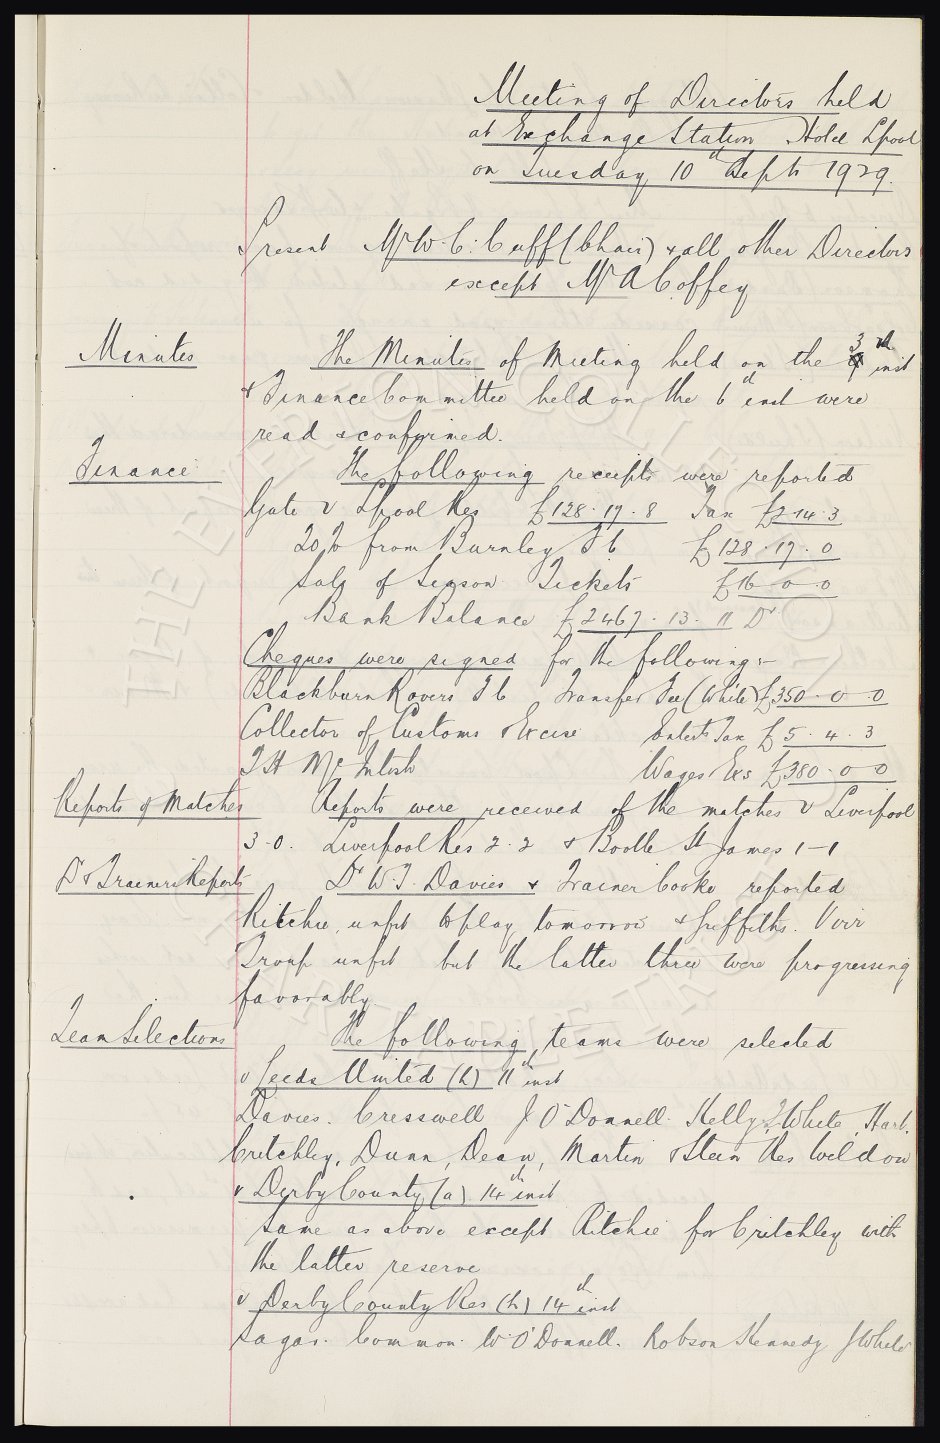 Meeting of Directors held
at Exchange Station Hotel Lpool
on Tuesday 10th Sept 1929.
Present Mr W. C. Cuff (Chair) & all other Directors
except Mr A Coffey
Minutes The Minutes of Meeting held on the 3rd inst
& Finance Committee held on the 6th inst were
read & confirmed.
Finance The following receipts were reported
Gate v Lpool Res £128.17.8 Tax £2.14.3
20% from Burnley F C £128.17.0
Sale of Season Tickets £16-0-0
Bank Balance £2467.13.11 Dr
Cheques were signed for the following:-
Blackburn Rovers F C Transfer Fee (White) £350-0-0
Collector of Customs & Excise Entert Tax £5.4.3
T H McIntosh Wages & Exs £380-0-0
Reports of Matches Reports were received of the matches v Liverpool
3-0. Liverpool Res 2-2 & Bootle St James 1-1
Dr & Trainers Reports Dr W. F. Davies & Trainer Cooke reported
Ritchie, unfit to play tomorrow & Griffiths. Virr
Troup unfit but the latter three were progressing
favorably.
Team Selections The following teams were selected
v Leeds United (h) 11th inst
Davies. Cresswell J O'Donnell. Kelly T White, Hart.
Critchley, Dunn, Dean, Martin & Stein Res Weldon
v Derby County (a) 14th inst
Same as above except Ritchie for Critchley with
the latter reserve
v Derby County Res (h) 14th inst
Sagar. Common. W O'Donnell. Robson Kennedy J White
THE EVERTON COLLECTION
CHARITABLE TRUST